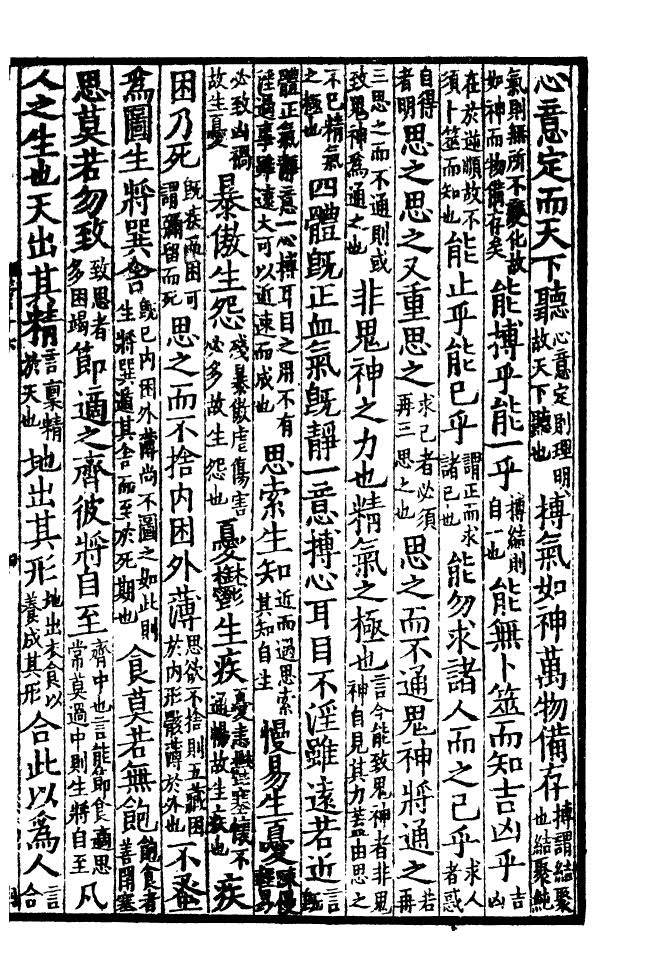 心意定而天下聽心意定則理明故天下聽也搏氣如神萬物備存搏謂結聚也結聚純
氣則無所不變化故如神而物備存矣能搏乎能一乎搏結則自一也能無卜筮而知吉凶乎吉凶
在於逆順故不須卜筮而知也能止乎能已乎謂正而求諸已也能勿求諸人而之己乎求人者惑
自得者明思之思之又重思之求己者必須再三思之也思之而不通鬼神將通之若再
三思之而不通則或致鬼神爲通之也非鬼神之力也精氣之極也言今能致鬼神者非鬼神自見其力蓋由思之
不已精氣之極也四體既正血氣既靜一意搏心耳目不淫雖遠若近言既
體正氣靜意一心搏耳目之用不有淫過事雖遠大可以近速而成也思索生知近而過思索其知自生慢易生憂疎慢輕易
必致凶禍故生憂暴傲生怨殘暴傲虐傷害必多故生怨也憂鬱生疾憂恚鬱塞懷不通暢故生疾也疾
困乃死既疾而困可謂彌留而死思之而不捨内困外薄思欲不捨則五藏困於内形骸薄於外也不蚤
爲圖生將巽舍既已内困外薄尚不圖之如此則生將巽遁其舍而至於死期也食莫若無飽飽食者善閉塞
思莫若勿致致思者多困竭節適之齊彼將自至齊中也言能節食適思常莫過中則生將自至凡
人之生也天出其精言稟精於天也地出其形地出衣食以養成其形合此以爲人言合